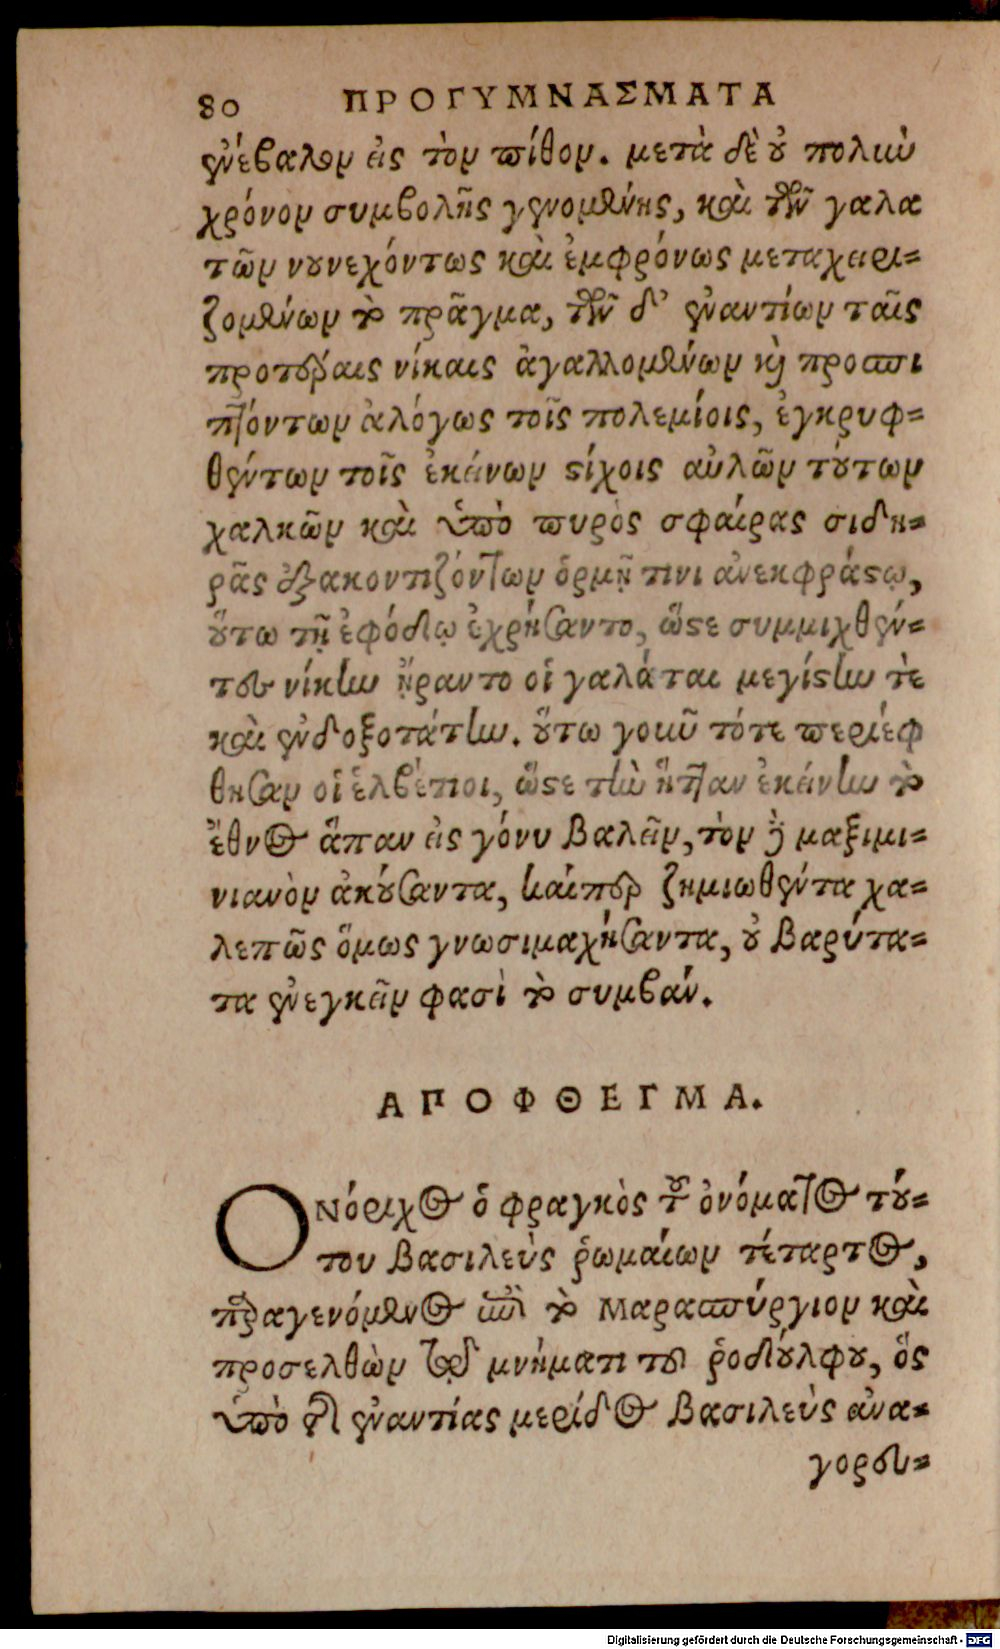 80 ΠΡΟΓΥΜΝΑΣΜΑΤΑ
ἐνέβαλον εἰς τὸν πίθον. μετὰ δὲ οὐ πολὺ
χρόνον συμβολῆς γενομένης, καὶ τῶν γαλα
τῶν νουνεχόντως καὶ ἐμφρόνως μεταχειρι=
ζομένων τὸ πρᾶγμα, τῶν δ' ἐναντίων ταῖς
προτέραις νίκαις ἀγαλλομένων καὶ προσπι
πτόντων ἀλόγως τοῖς πολεμίοις, ἐγκρυφ=
θέντων τοῖς ἐκείνων στίχοις αὐλῶν τούτων
χαλκῶν καὶ ὑπὸ πυρὸς σφαίρας σιδη=
ρᾶς ἐξακοντιζόντων ὁρμῇ τινι ἀνεκφράστῳ,
οὕτω τῇ ἐφόδῳ ἐχρήσαντο, ὥστε συμμιχθέν=
τες νίκην ᾔραντο οἱ γαλάται μεγίστην τὲ
καὶ ἐνδοξοτάτην. οὕτω γοιοῦν τότε περιέφ
θησαν οἱ ἑλβέτιοι, ὥστε τὴν ἧτταν ἐκείνην τὸ
ἔθνος ἅπαν εἰς γόνυ βαλεῖν, τὸν δὲ μαξιμι=
νιανὸν ἀκούσαντα, καίπερ ζημιωθέντα χα=
λεπῶς ὅμως γνωσιμαχήσαντα, οὐ βαρύτα=
τα ἐνεγκεῖν φασὶ τὸ συμβάν.
ΑΠΟΦΘΕΓΜΑ.
ΟΝόριχος ὁ φραγκὸς τοῦ ὀνόματος τού=
του βασιλεὺς ῥωμαίων τέταρτος,
παραγενόμενος ἐπὶ τὸ Μαρασπύργιον καὶ
προσελθὼν τῷ μνήματι τοῦ ῥοδούλφου, ὃς
ὑπὸ τῆς ἐναντίας μερίδος βασιλεὺς ἀνα=
γορευ=
Digitalisierung gefördert durch die Deutsche Forschungsgemeinschaft - DFG